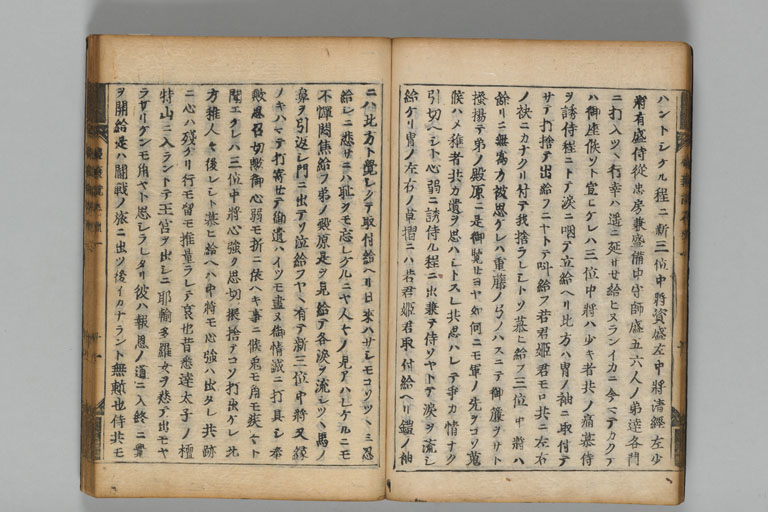 ハントシケル程ニ新三位中将資盛左中将清経左少
将有盛侍従忠房兼盛備中守師盛五六人ノ弟達各門
ニ打入ツヽ行幸ハ遥ニ延サセ給ヒヌランイカニ今マテカクテ
ハ御座候ソト宣ヒケレハ三位中将ハ少キ者共ノ痛慕侍
ヲ誘侍程ニトテ涙ニ咽テ立給ヘリ北方ハ冑ノ袖ニ取付テ
サテ打捨テ出給フニヤトテ叫給フ若君姫君モロ共ニ左右
ノ袂ニカナクリ付テ我捨ラレシトソ慕ヒ給フ三位中将ハ
餘リニ無為方被思ケレハ重藤ノ弓ノハスニテ御簾ヲサト
掻揚テ弟ノ殿原ニ是御覧セヨヤ如何ニモ軍ノ先ヲコソ蒐
候ハメ稚者共カ遺ヲ思ハシトスレ共思ハレテ争カ情ナク
引切ヘシト心弱ニ誘侍ル程ニ出兼テ侍ソヤトテ涙ヲ流シ
給ケリ冑ノ左右ノ草摺ニハ若君姫君取付給ヘリ鎧ノ袖
ニハ北方ト覚シクテ取付給ヘリ日来ハサレモコソツヽミ忍
給シニ悲サニハ恥クモ忘レケルニヤ人々ノ見アハレケルニモ
不憚悶焦給フ弟ノ殿原是ヲ見給テ各涙ヲ流シツヽ馬ノ
鼻ヲ引返シ門ニ出テソ泣給フヤヽ有テ新三位中将又縁
ノキハマテ打寄セテ御遺ハイツモ尽ヌ御情ニ打具シ奉
歟思召切歟御心弱モ折ニ依ヘキ事ニ候兎モ角モ疾々ト
聞エケレハ三位中将心強ク思切振捨テコソ打出ケレ北
方稚人々後レシト慕ヒ給ヘハ中将モ心強ハ出タレ共跡
ニ心ハ残ケリ行モ留モ推量ラレテ哀也昔悉達太子ノ檀
特山ニ入ラントテ王宮ヲ出シニ耶輸多羅女ヲ悲テ出モヤ
ラサリケンモ角ヤト思シラレタリ彼ハ報恩ノ道ニ入終ニ
ヲ開給是ハ闘戦ノ旅ニ出ツ後イカナラント無慙也侍共モ